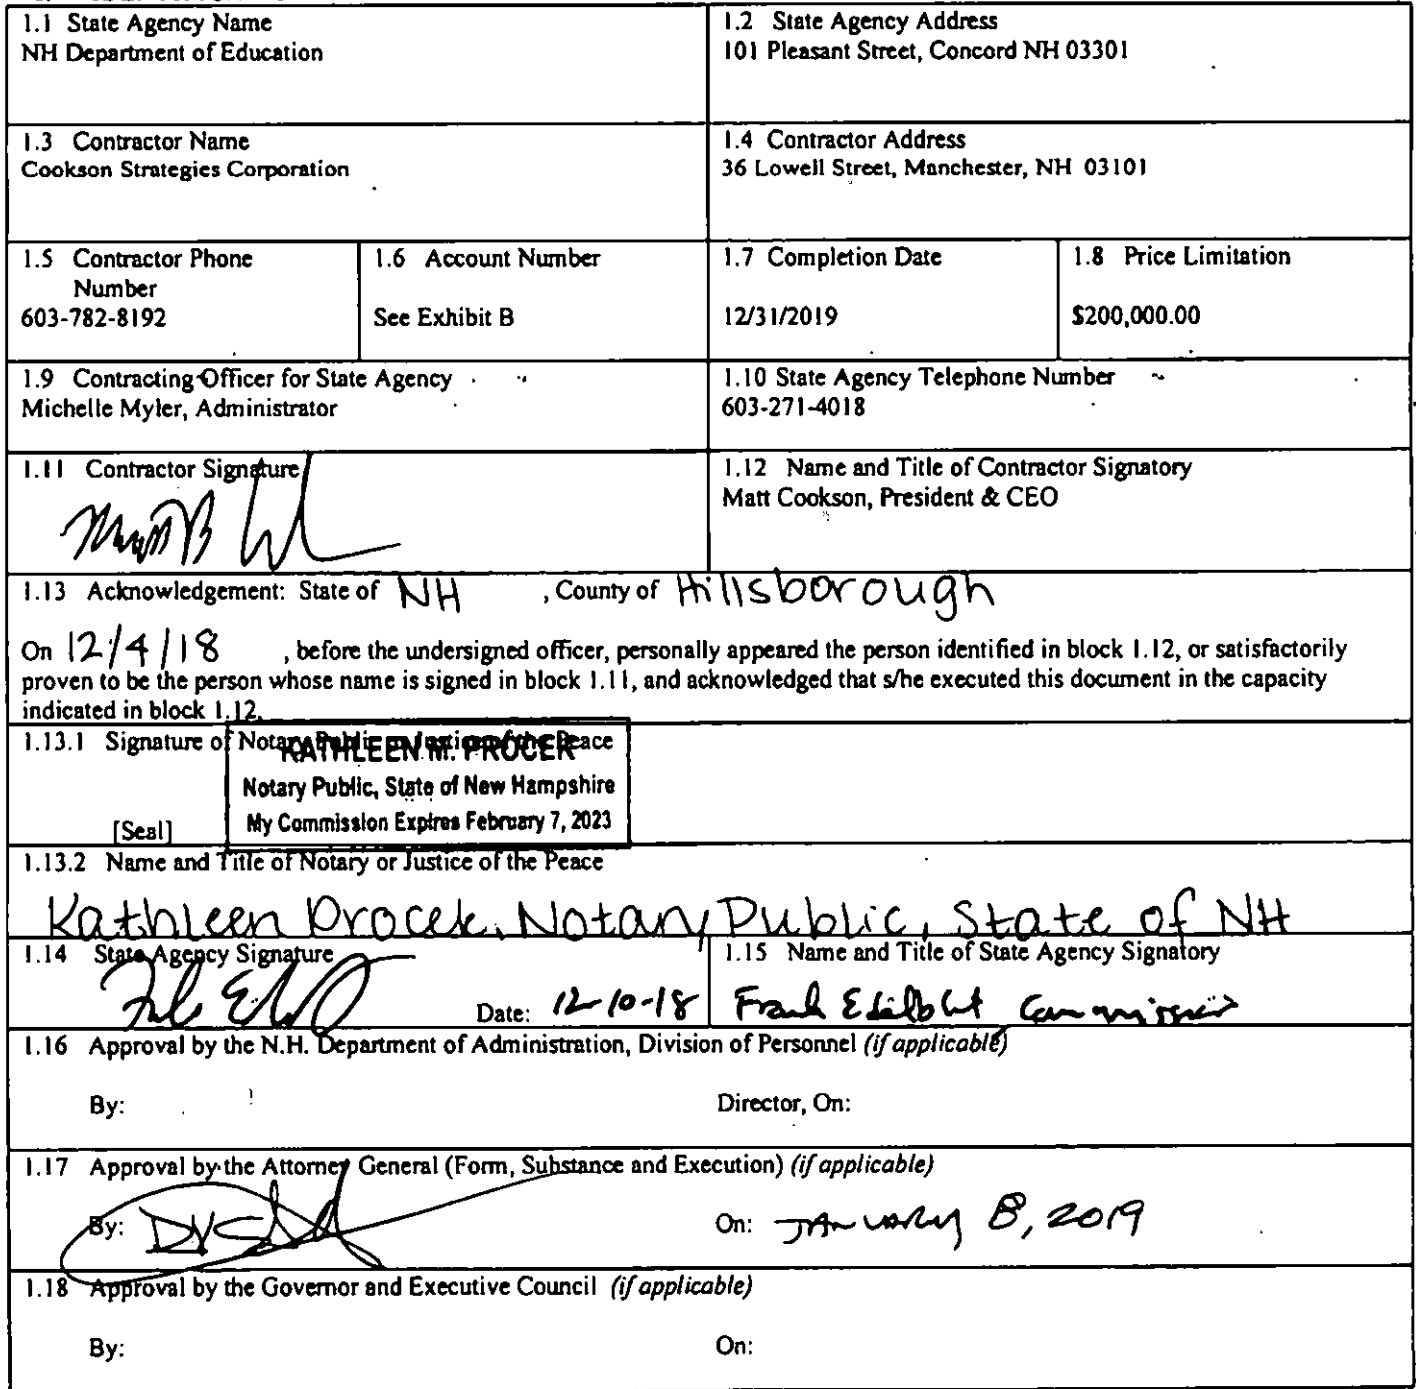 1.1 State Agency Name
NH Department of Education
1.2 State Agency Address
101 Pleasant Street, Concord NH 03301
1.3 Contractor Name
Cookson Strategies Corporation
1.4 Contractor Address
36 Lowell Street, Manchester, NH 03101
1.5 Contractor Phone
Number
603-782-8192
1.6 Account Number
See Exhibit B
1.7 Completion Date
12/31/2019
1.8 Price Limitation
$200,000.00
1.9 Contracting Officer for State Agency
Michelle Myler, Administrator
1.10 State Agency Telephone Number
603-271-4018
1.11 Contractor Signature
1.12 Name and Title of Contractor Signatory
Matt Cookson, President & CEO
1.13 Acknowledgement: State of NH , County of Hillsborough
On 12/4/18 , before the undersigned officer, personally appeared the person identified in block 1.12, or satisfactorily
proven to be the person whose name is signed in block 1.11, and acknowledged that s/he executed this document in the capacity
indicated in block 1.12.
1.13.1 Signature of Notary Public or Justice of the Peace
KATHLEEN M. PROCEK
Notary Public, State of New Hampshire
My Commission Expires February 7, 2023
[Seal]
1.13.2 Name and Title of Notary or Justice of the Peace
Kathleen Procek, Notary Public, State of NH
1.14 State Agency Signature
Date: 12-10-18
1.15 Name and Title of State Agency Signatory
Frank Edelblut Commissioner
1.16 Approval by the N.H. Department of Administration, Division of Personnel (if applicable)
By:
Director, On:
1.17 Approval by the Attorney General (Form, Substance and Execution) (if applicable)
By:
On: January 8, 2019
1.18 Approval by the Governor and Executive Council (if applicable)
By:
On: